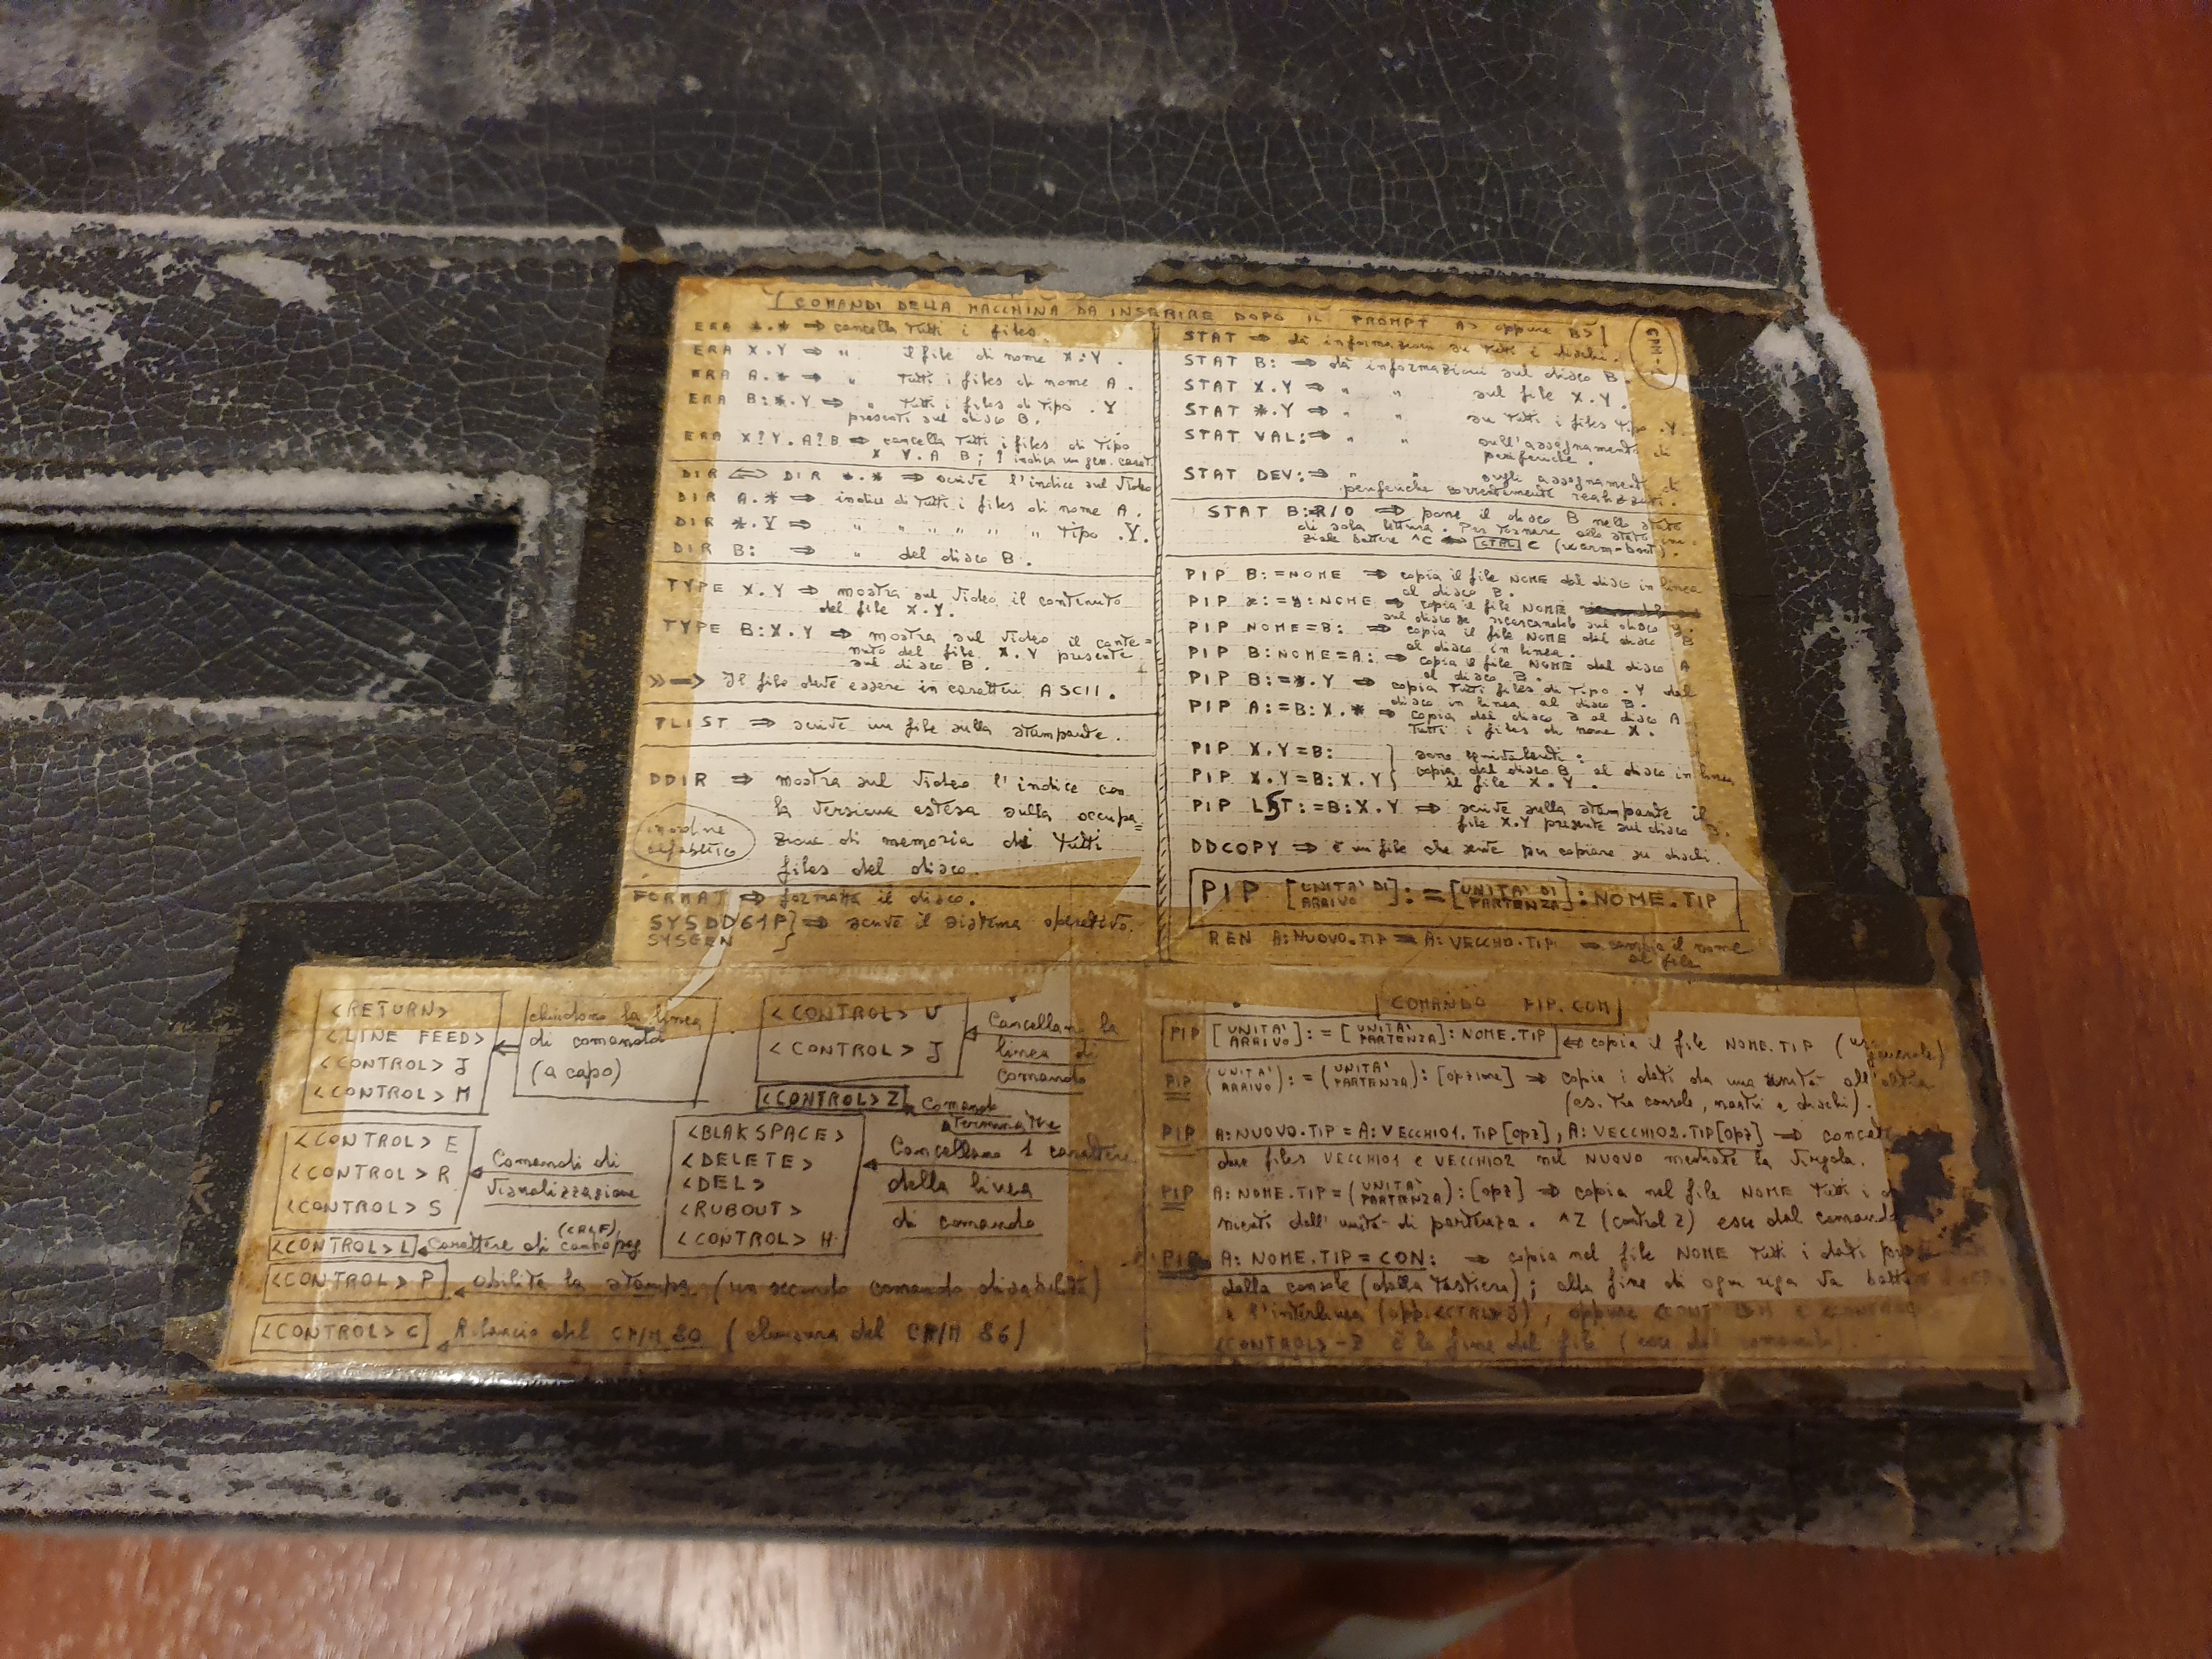 I COMANDI DELLA MACCHINA DA INSERIRE DOPO IL PROMPT A> oppure B>
CPM-1
ERA *.* ⇒ cancella tutti i files.
ERA X.Y ⇒ " il file di nome X.Y.
ERA A.* ⇒ " tutti i files di nome A.
ERA B:*.Y ⇒ " tutti i files di tipo .Y
presenti sul disco B.
ERA X?Y.A?B ⇒ cancella tutti i files di tipo
X Y.A B; ? indica un gen. caratt.
DIR ⇔ DIR *.* ⇒ scrive l'indice sul video
DIR A.* ⇒ indice di tutti i files di nome A.
DIR *.Y ⇒ " " " " " " tipo .Y.
DIR B: ⇒ " del disco B.
TYPE X.Y ⇒ mostra sul video il contenuto
del file X.Y.
TYPE B:X.Y ⇒ mostra sul video il conte=
nuto del file X.Y presente
sul disco B.
»→ Il file deve essere in caratteri ASCII.
TLIST ⇒ scrive un file sulla stampante.
DDIR ⇒ mostra sul video l'indice con
la versione estesa sulla occupa=
in ordine
alfabetico
zione di memoria di tutti
files del disco.
FORMAT ⇒ formatta il disco.
SYSDD61P } ⇒ scrive il sistema operativo.
SYSGEN
STAT ⇒ dà informazioni su tutti i dischi.
STAT B: ⇒ dà informazioni sul disco B.
STAT X.Y ⇒ " " sul file X.Y.
STAT *.Y ⇒ " " su tutti i files tipo .Y.
STAT VAL: ⇒ " " sull'assegnamento di
periferiche.
STAT DEV: ⇒ " " sugli assegnamenti di
periferiche correntemente realizzati.
STAT B:=R/O ⇒ pone il disco B nello stato
di sola lettura. Per tornare allo stato ini=
ziale battere ^C ⇔ CTRL C (warm-boot).
PIP B:=NOME ⇒ copia il file NOME dal disco in linea
al disco B.
PIP x:=y:NOME ⇒ copia il file NOME
sul disco x ricercandolo sul disco y.
PIP NOME=B: ⇒ copia il file NOME dal disco B
al disco in linea.
PIP B:NOME=A: ⇒ copia il file NOME dal disco A
al disco B.
PIP B:=*.Y ⇒ copia tutti files di tipo .Y dal
disco in linea al disco B.
PIP A:=B:X.* ⇒ copia dal disco B al disco A
tutti i files di nome X.
PIP X.Y=B: } sono equivalenti:
PIP X.Y=B:X.Y } copia dal disco B al disco in linea
il file X.Y.
PIP LST:=B:X.Y ⇒ scrive sulla stampante il
file X.Y presente sul disco B.
DDCOPY ⇒ è un file che serve per copiare su dischi.
PIP [UNITA' DI ARRIVO]:=[UNITA' DI PARTENZA]:NOME.TIP
REN A:NUOVO.TIP=A:VECCHIO.TIP ⇒ cambia il nome
al file
<RETURN>
<LINE FEED>
<CONTROL> J
<CONTROL> M
chiudono la linea
di comando
(a capo)
<CONTROL> U
<CONTROL> J
Cancellano la
linea di
comando
<CONTROL> Z Comando
terminatore
<CONTROL> E
<CONTROL> R
<CONTROL> S
Comandi di
visualizzazione
<BLAKSPACE>
<DELETE>
<DEL>
<RUBOUT>
<CONTROL> H
Cancellano 1 carattere
della linea
di comando
<CONTROL> L Carattere di (CRLF)
<CONTROL> P abilita la stampa (un secondo comando disabilita)
<CONTROL> C Rilancio del CP/M 80 (chiusura del CP/M 86)
COMANDO PIP.COM
PIP [UNITA' ARRIVO]:=[UNITA' PARTENZA]:NOME.TIP ⇔ copia il file NOME.TIP ( generale)
PIP (UNITA' ARRIVO):=(UNITA' PARTENZA):[opzione] ⇒ copia i dati da una unità all'altra
(es. tra console, nastri e dischi).
PIP A:NUOVO.TIP=A:VECCHIO1.TIP[opz],A:VECCHIO2.TIP[opz] ⇒
due files VECCHIO1 e VECCHIO2 nel NUOVO mediante la virgola.
PIP A:NOME.TIP=(UNITA' PARTENZA):[opz] ⇒ copia nel file NOME tutti i
nienti dall'unità di partenza. ^Z (control Z) esce dal comando
PIP A:NOME.TIP=CON: ⇒ copia nel file NOME tutti i dati
dalla console (dalla tastiera); alla fine di ogni riga va
e l'interlinea (opp.<CTRL>J), oppure
<CONTROL>-Z è la fine del file (esce dal comando).